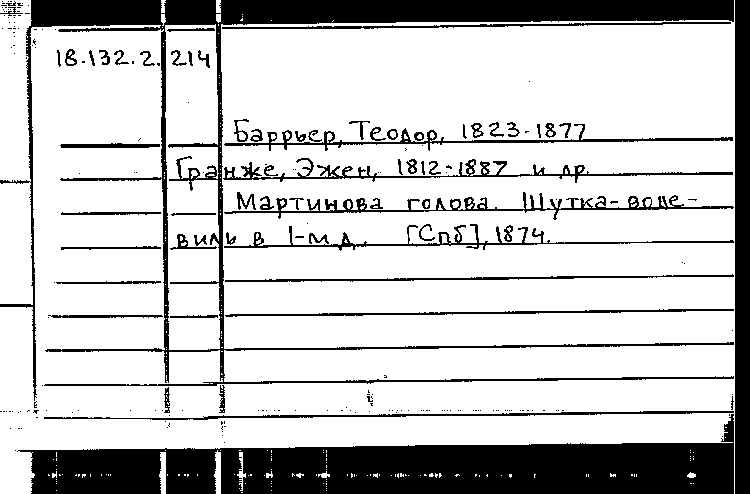 18.132.2.214
Баррьер, Теодор, 1823-1877
Гранже, Эжен, 1812-1887 и др.
Мартинова голова. Шутка-воде-
виль в 1-м д. [Спб], 1874.